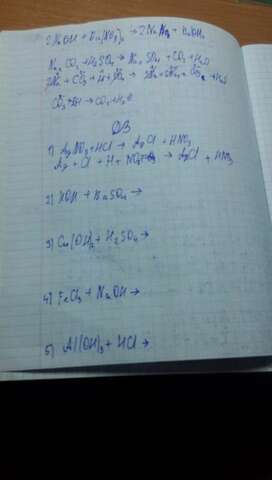 2NaOH + Ba(NO3)2 → 2NaNO3 + Ba(OH)2
Na2CO3 + H2SO4 → Na2SO4 + CO2 + H2O
CO3 + 2H → CO2 + H2O
1) AgNO3 + HCl → AgCl + HNO3
Ag + Cl + H + NO3 → AgCl + HNO3
2) KOH + BaSO4 →
3) Cu(OH)2 + H2SO4 →
4) FeCl3 + NaOH →
5) Al(OH)3 + HCl →